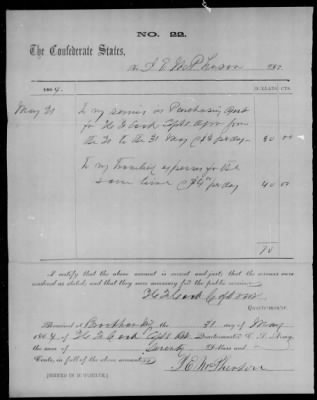 NO. 22.
The Confederate States,
To J E McPherson DR.
1864. DOLLARS CTS.
May 31 To my services as Purchasing Agent
for
the to the 31 May per day 30 00
To my Traveling expenses for the
same time per day 40 00
70
I certify that the above account is correct and just; that the services were
rendered as stated; and that they were necessary for the public service.
QUARTERMASTER.
Received at Brookhaven the 31 day of May
1864, of Capt Quartermaster C. S. Army,
the sum of Seventy Dollars and
Cents, in full of the above account.
J E McPherson
[SIGNED IN DUPLICATE.]